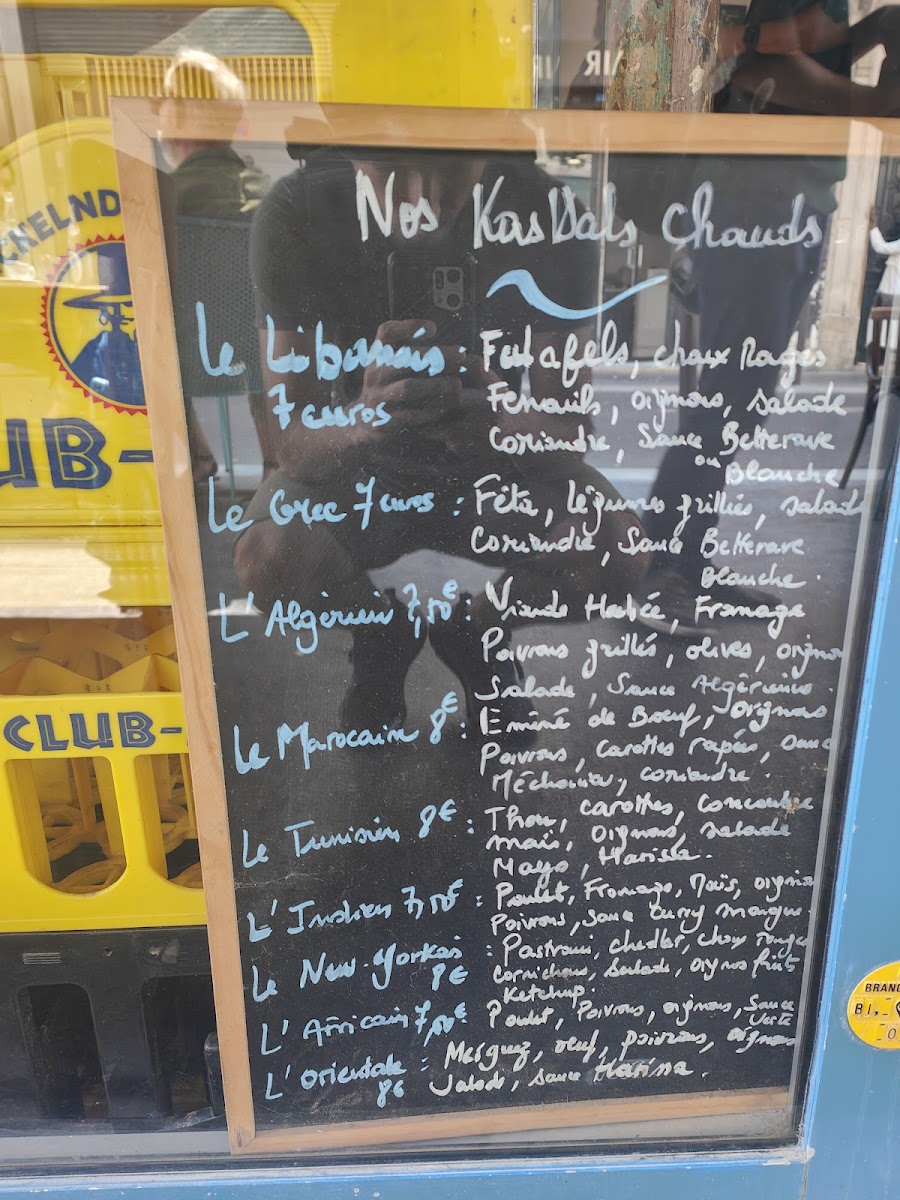 Nos KasDals Chauds
Le Libanais : Fallafels, choux Rouges
7 euros
Fenouils, oignons, salade
Coriandre, Sauce Betterave
ou
Blanche
Le Grec 7 euros : Féta, légumes grillés, salade
Coriandre, Sauce Betterave
Blanche.
L'Algérien 7,50€ : Viande Hachée, Fromage
Poivrons grillés, olives, oignon
Salade, Sauce Algérienne.
Le Marocain 8€ : Eminé de Boeuf, oignons
Poivrons, carottes rapés, sauce
Méchouia, coriandre.
Le Tunisien 8€ : Thon, carottes, concombre
maïs, oignons, salade
Mayo, Harissa.
L'Indien 7,50€ : Poulet, Fromage, Maïs, oignon
Poivrons, Sauce Curry mangue.
Le New-Yorkais : Pastrami, chedar, choux rouge
8€
Cornichons, salade, oignos frits
Ketchup.
L'Africain 7,50€ : Poulet, Poivrons, oignons, Sauce
Verte
L'orientale : Merguez, oeuf, poivrons, oignons
8€
Salade, sauce Harissa.
CLUB-
UB-
BRAN